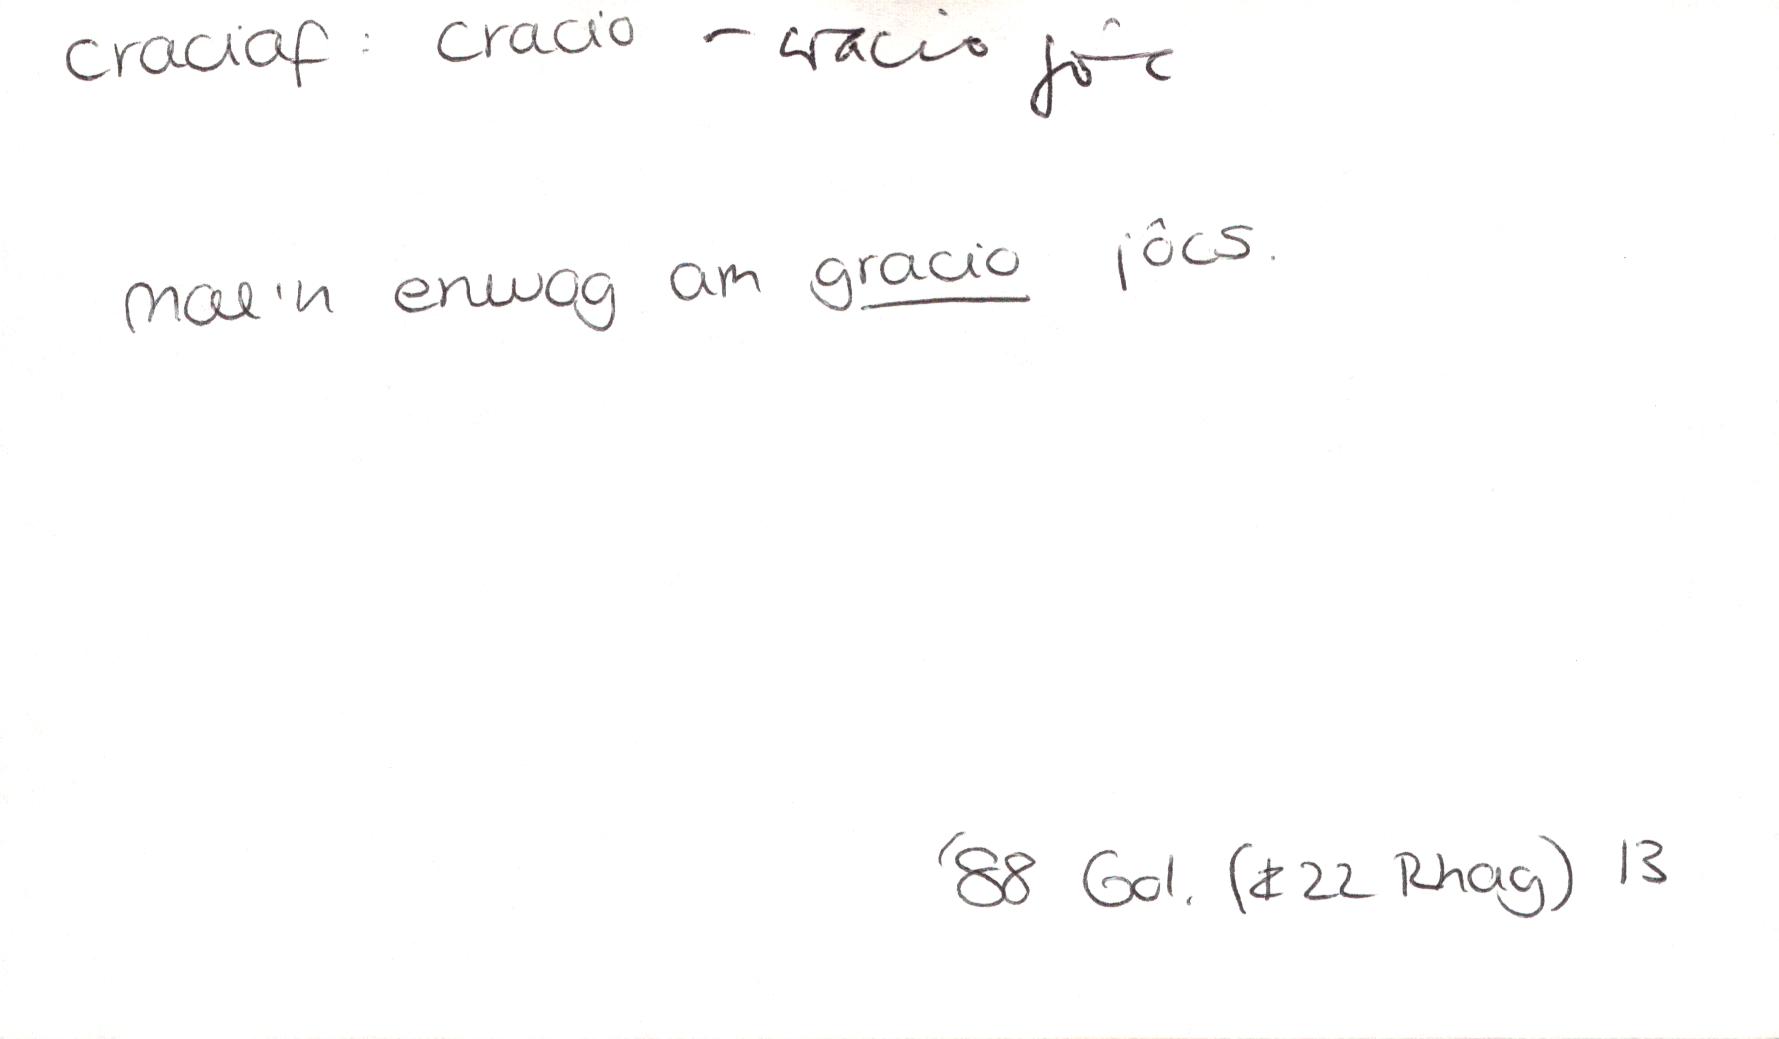 craciaf: cracio - cracio jôc
mae'n enwog am gracio jôcs.
'88 Gol. (22 Rhag) 13